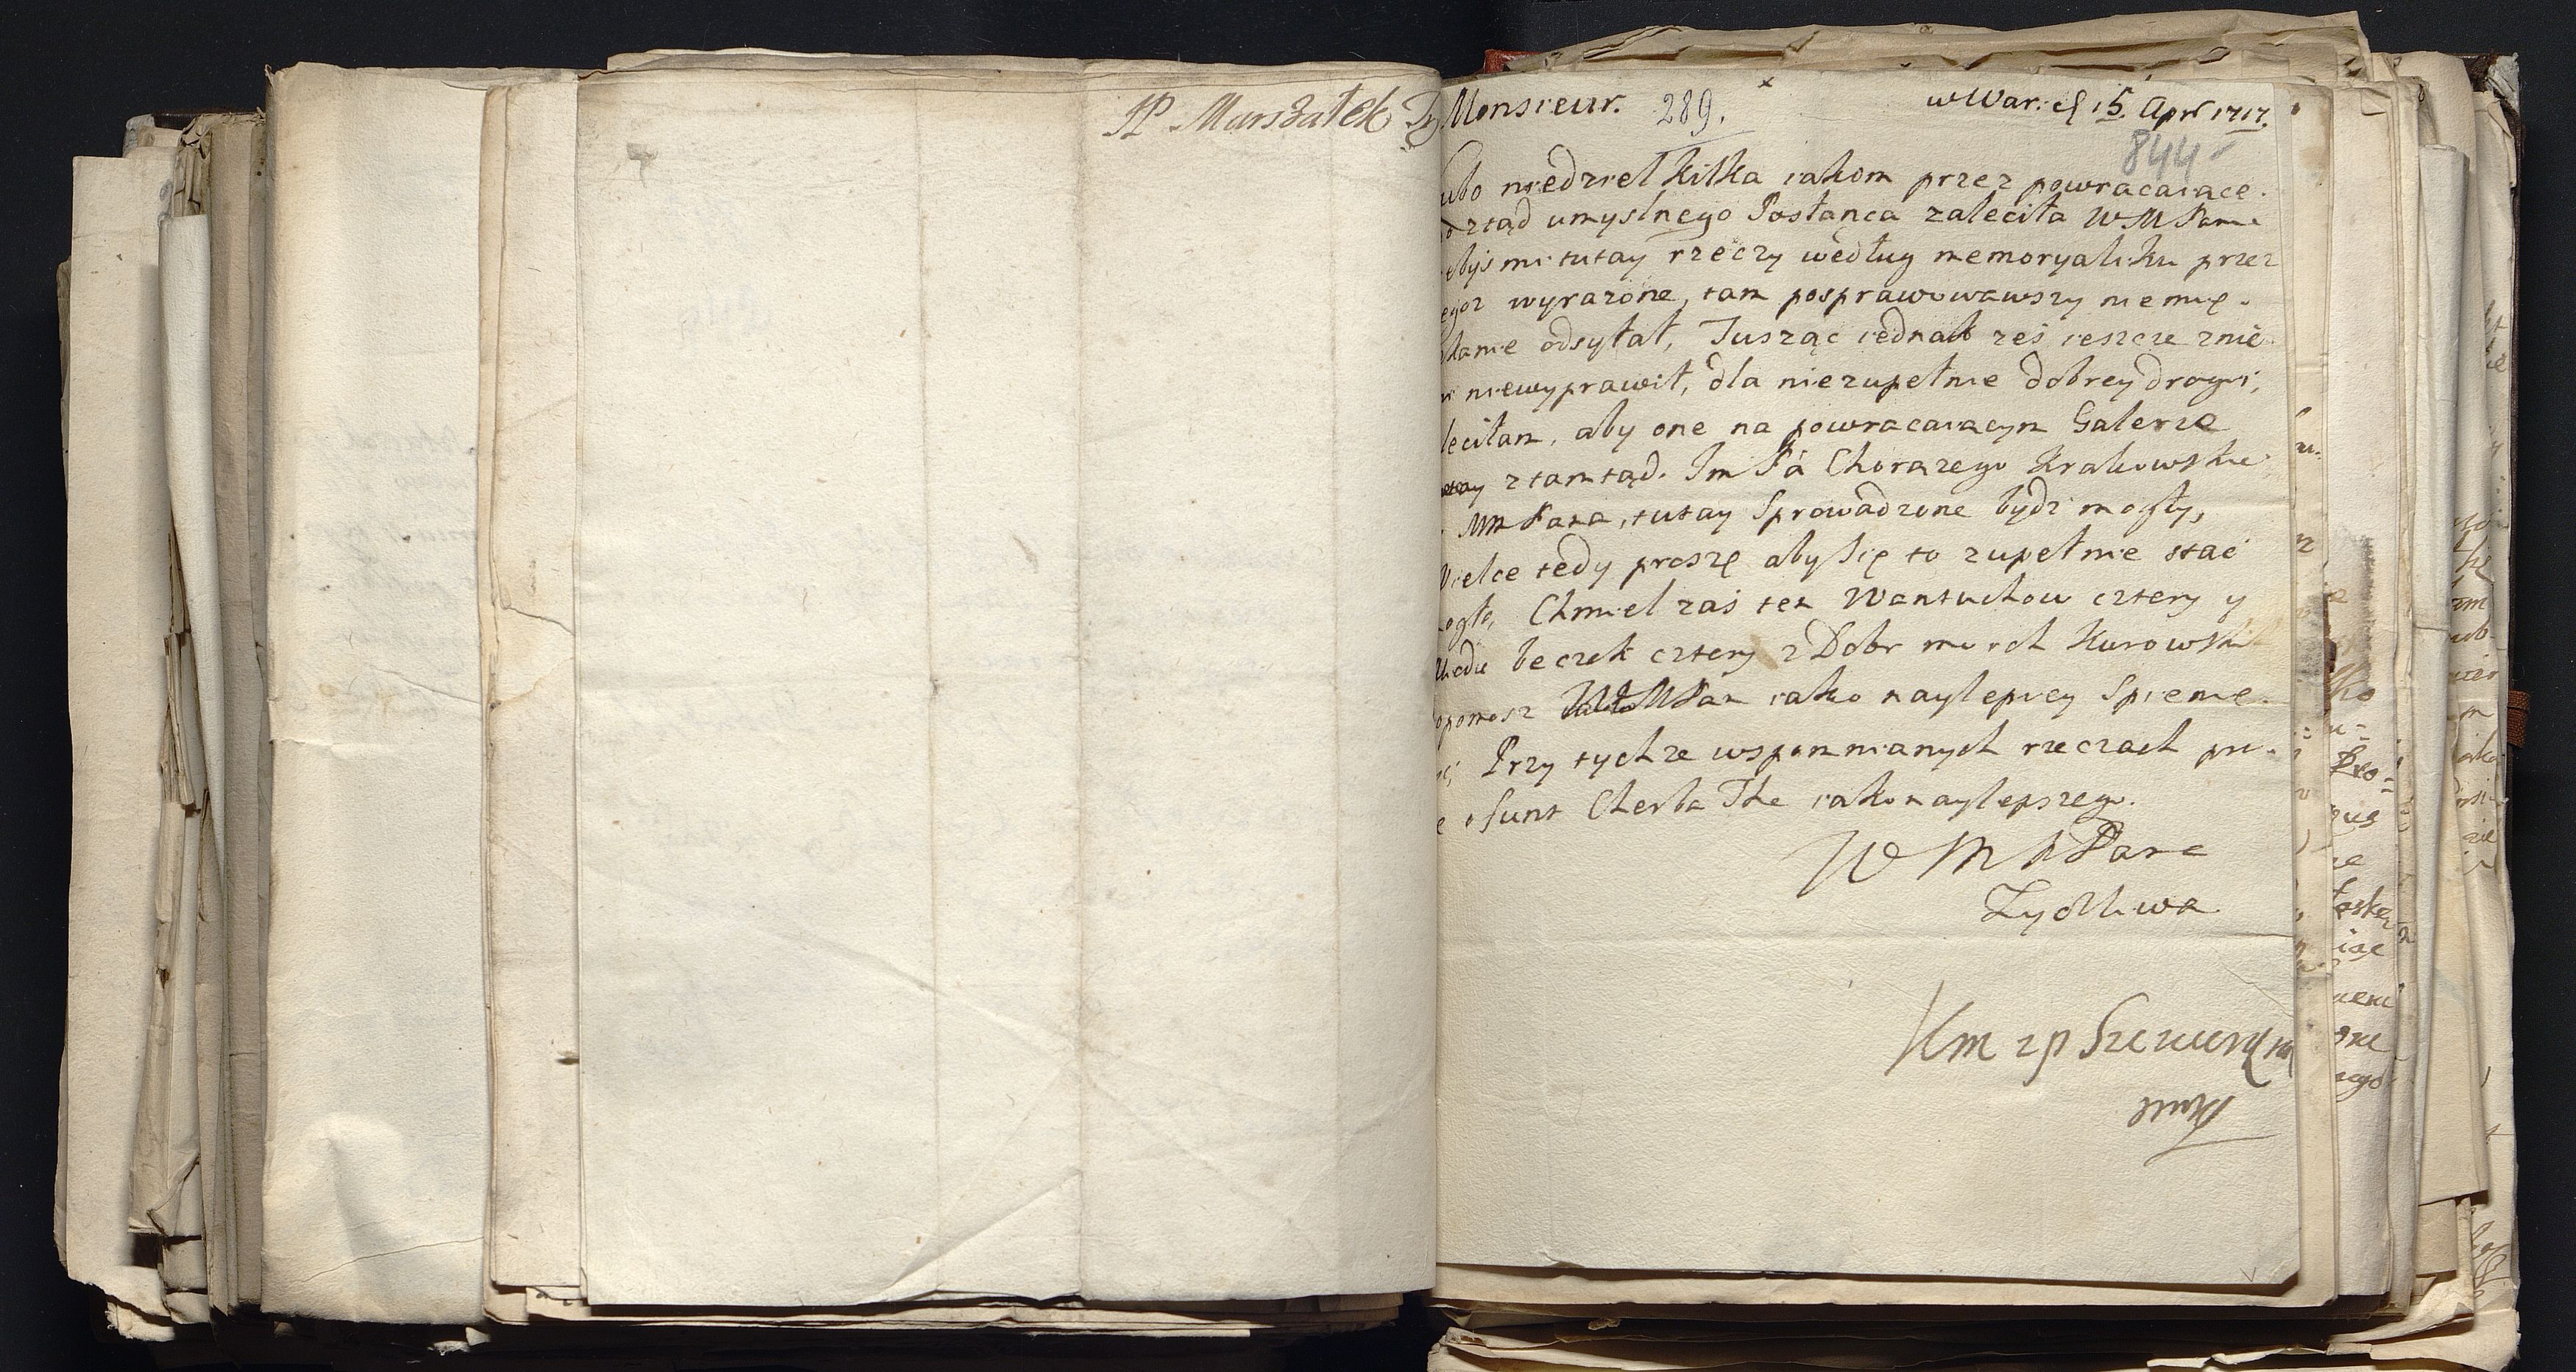 JP Marszałek
Monsieur. 289. w War: d 15. Apr 1717.
844
ubo niedziel kilka iakom przez powracaiące
ztąd umyslnego Posłanca zaleciła WM Panu
ebys mi tutay rzeczy według memoryaliku przez
egoz wyrazone, tam posprawowawszy niemię.
kanie odsyłał, Tusząc iednak zes ieszcze znie
i niewyprawił, dla niezupełnie dobrey drogi,
leciłam, aby one na powracaiącym Galerze
ztamtąd. Im Pá Chorązego Krakowskie
Mm Pana, tutay Sprowadzone bydz mogły,
Wielce tedy proszę aby się to zupełnie stać
ogło, Chmiel zaś ten Wantuchow cztery y
Miodu beczek cztery z Dobr moich Kurowski
opomosz WMPan iako naylepiey Spienię.
ic; Przy tychze wspomnianych rzeczach pr
e funt Cherba The iakonaylepszego.
W M M Pana
Zyczliwa